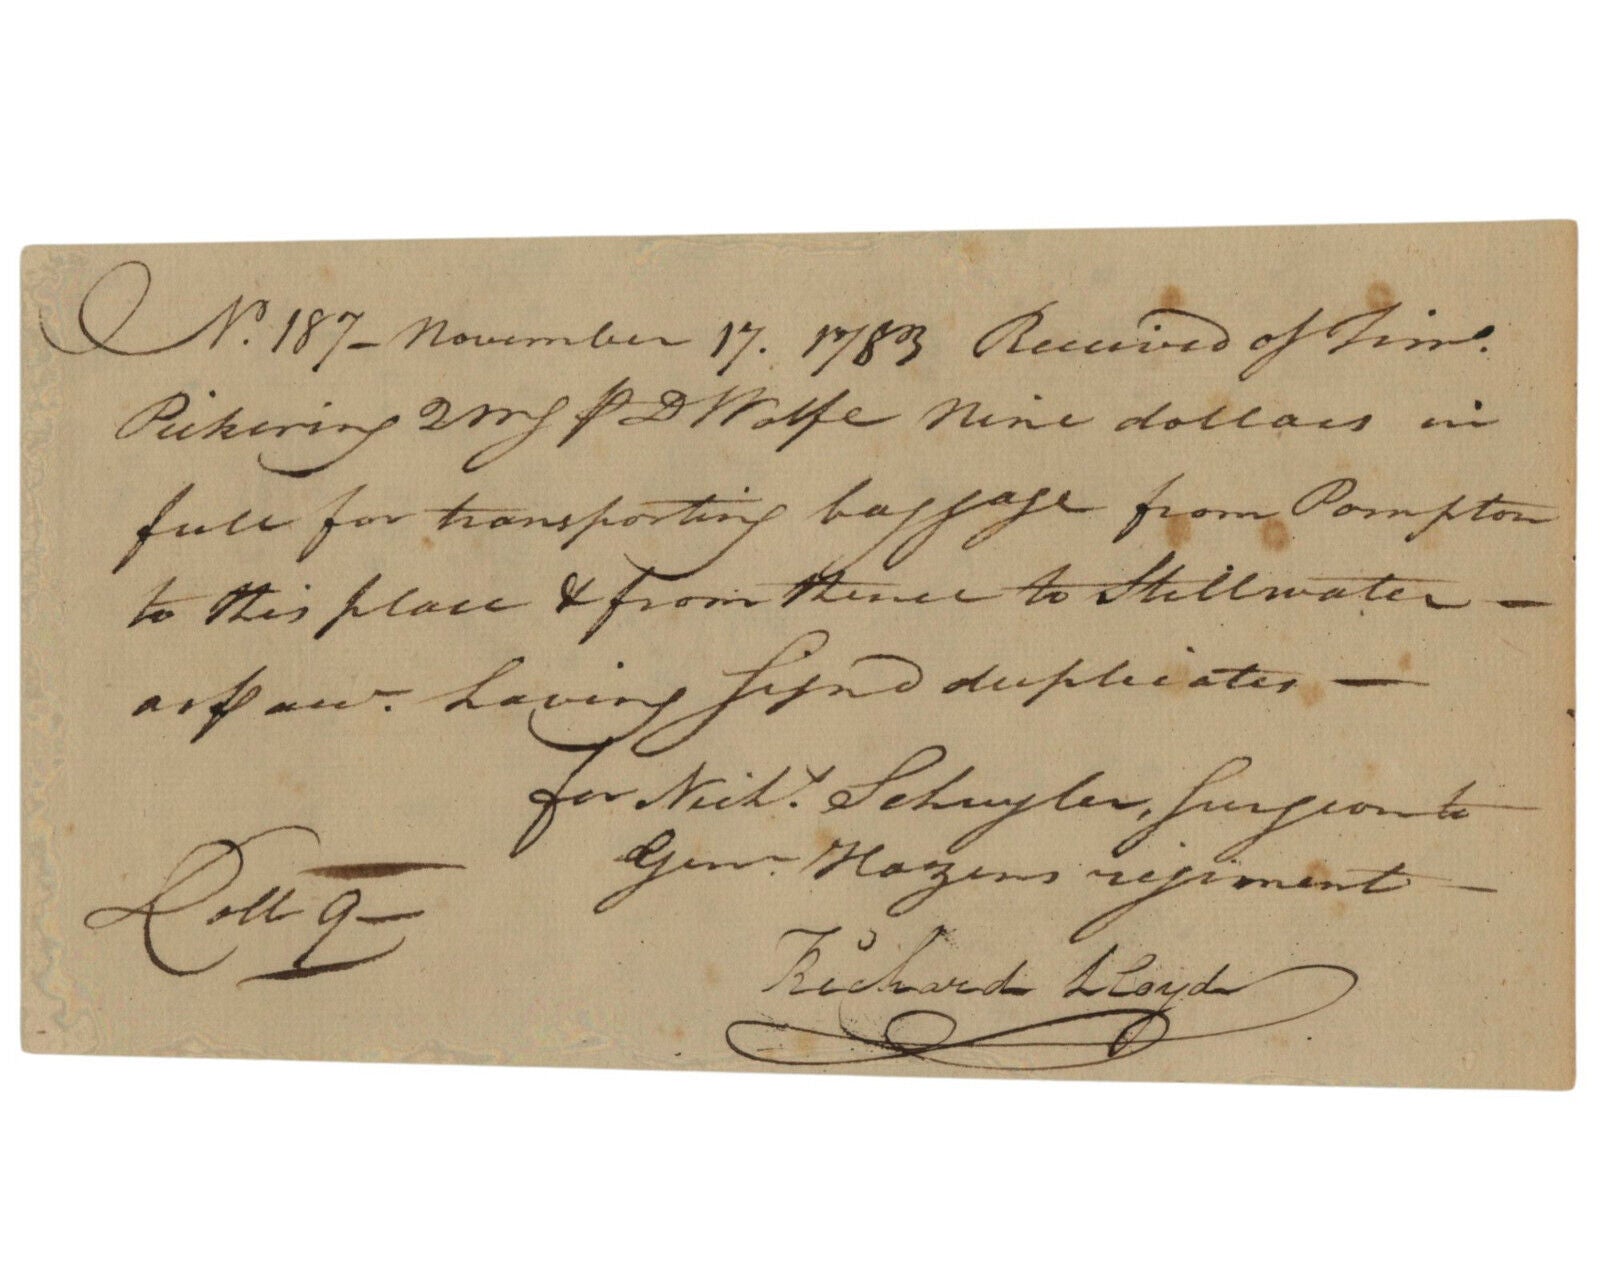 No. 187 - November 17. 1783 Received of Timo.
Pickering QMG ⅌ D Wolfe Nine dollars in
full for transporting baggage from Pompton
to this place & from thence to Stillwater —
as ⅌ acct. having Sign'd duplicates —
for Nichs. Schuyler, Surgeon to
Genl. Hazens regiment —
Doll 9 —
Richard Lloyd